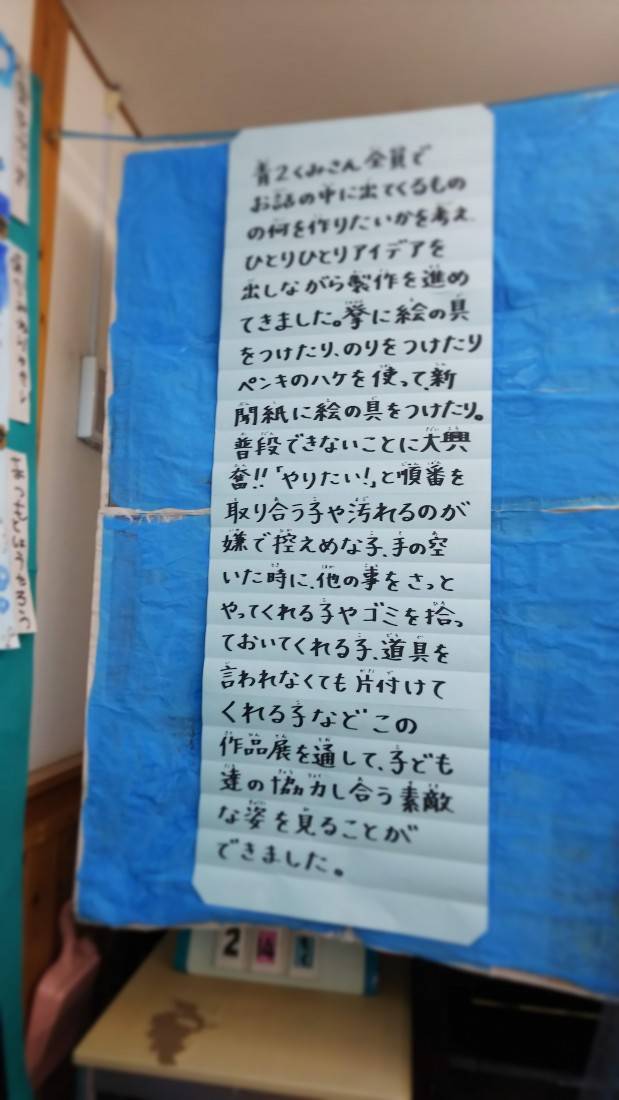 青2くみさん全員で
お話の中に出てくるもの
の何を作りたいかを考え、
ひとりひとりアイデアを
出しながら製作を進め
てきました。挙に絵の具
をつけたり、のりをつけたり
ペンキのハケを使って、新
聞紙に絵の具をつけたり。
普段できないことに大興
奮!!「やりたい!」と順番を
取り合う子や汚れるのが
嫌で控えめな子、手の空
いた時に、他の事をさっと
やってくれる子やゴミを拾っ
ておいてくれる子、道具を
言われなくても片付けて
くれる子など この
作品展を通して、子ども
達の協力し合う素敵
な姿を見ることが
できました。
2 14